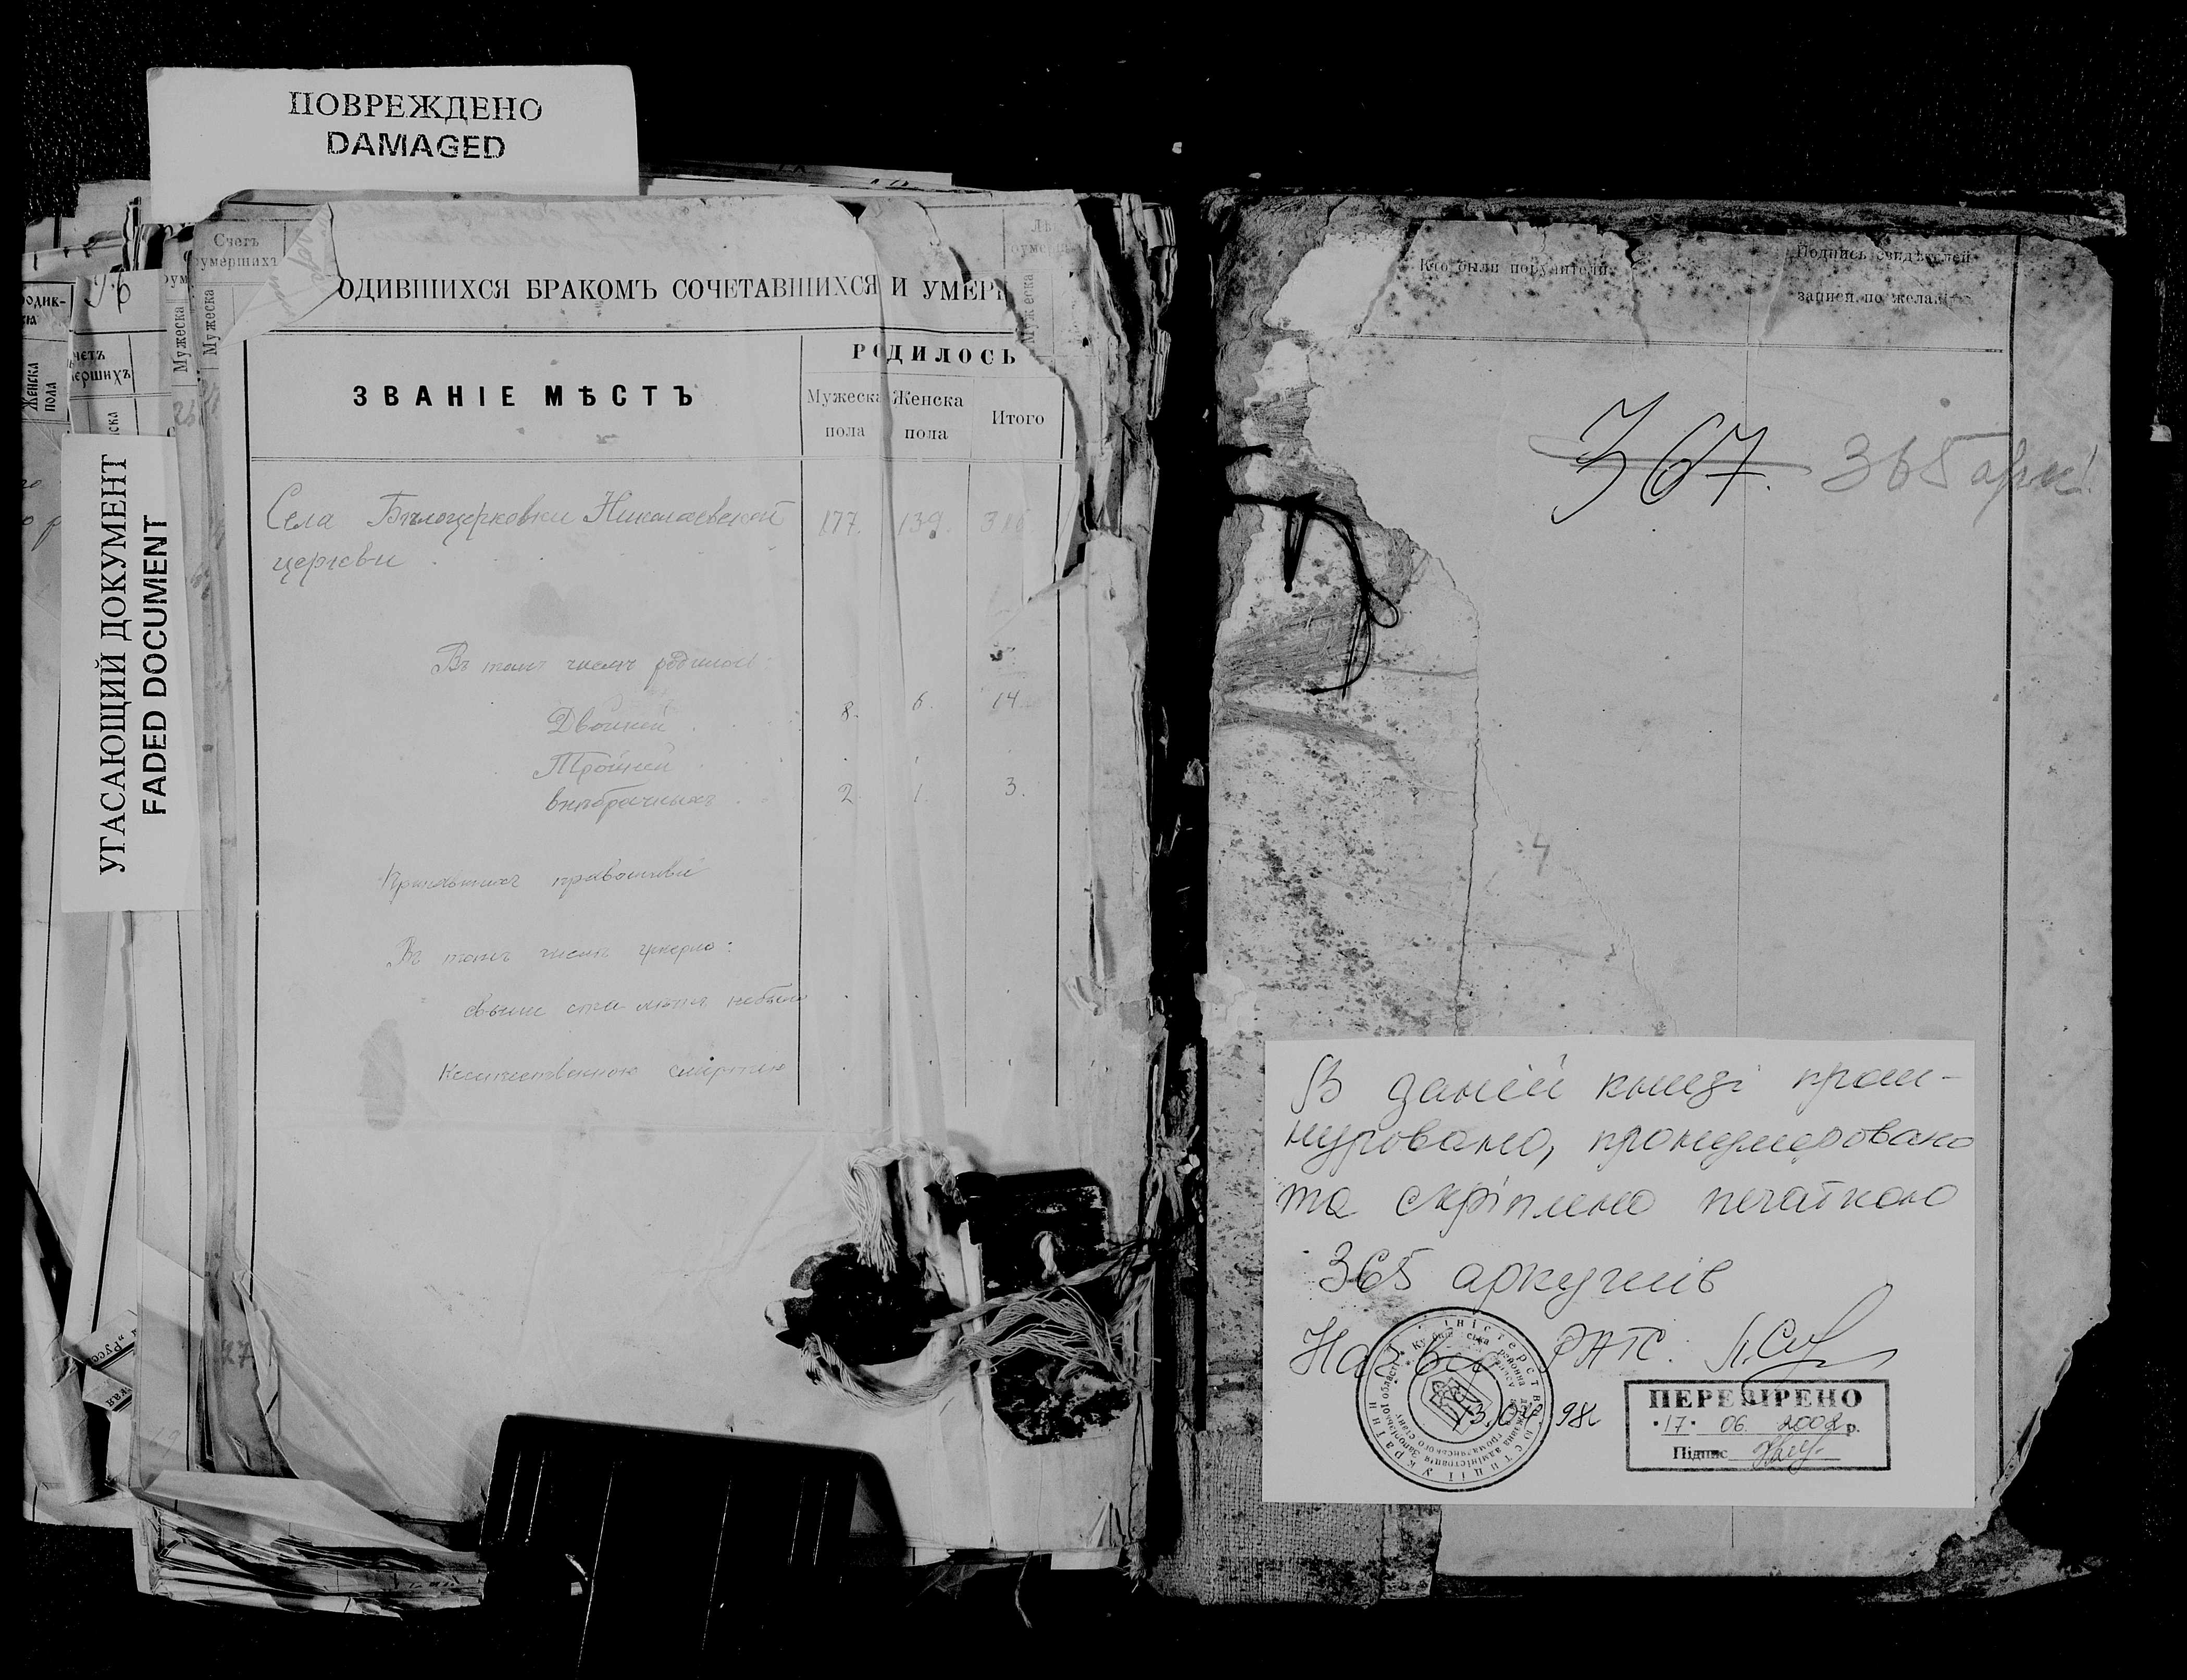 ПОВРЕЖДЕНО
DAMAGED
УГАСАЮЩИЙ ДОКУМЕНТ
FADED DOCUMENT
Счетъ
умершихъ
Мужеска
Мужеска
Женска
пола
ОДИВШИХСЯ БРАКОМЪ СОЧЕТАВШИХСЯ И УМЕР
ЗВАНІЕ МѢСТЪ
РОДИЛОСЬ
Мужеска
пола
Женска
пола
Итого
Села Бѣлоцерковки Николаевской 177. 139. 316
церкви
Въ томъ числѣ родилось:
Двойней 8. 6. 14.
Тройней
внѣбрачныхъ 2. 1. 3.
Принявшихъ православіе
Въ томъ числѣ умерло:
свыше ста лѣтъ небыло
Неестественною смертію
47
Кто были поручители.
Подпись свидѣтелей
записи по желанію
367. 365 арк.
В даній книзі прош-
нуровано, пронумеровано
та скріплено печаткою
365 аркушів
Нач. РАГС.
13.04.98
ПЕРЕВІРЕНО
17. 06. 2002 р.
Підпис